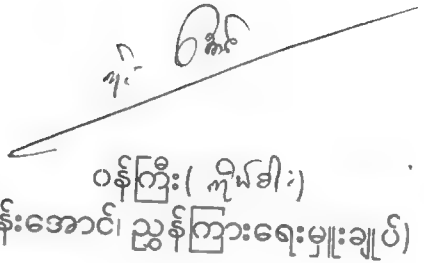 ဝန်ကြီး(ကိုယ်စား)
န်းအောင်၊ ညွှန်ကြားရေးမှူးချုပ်)